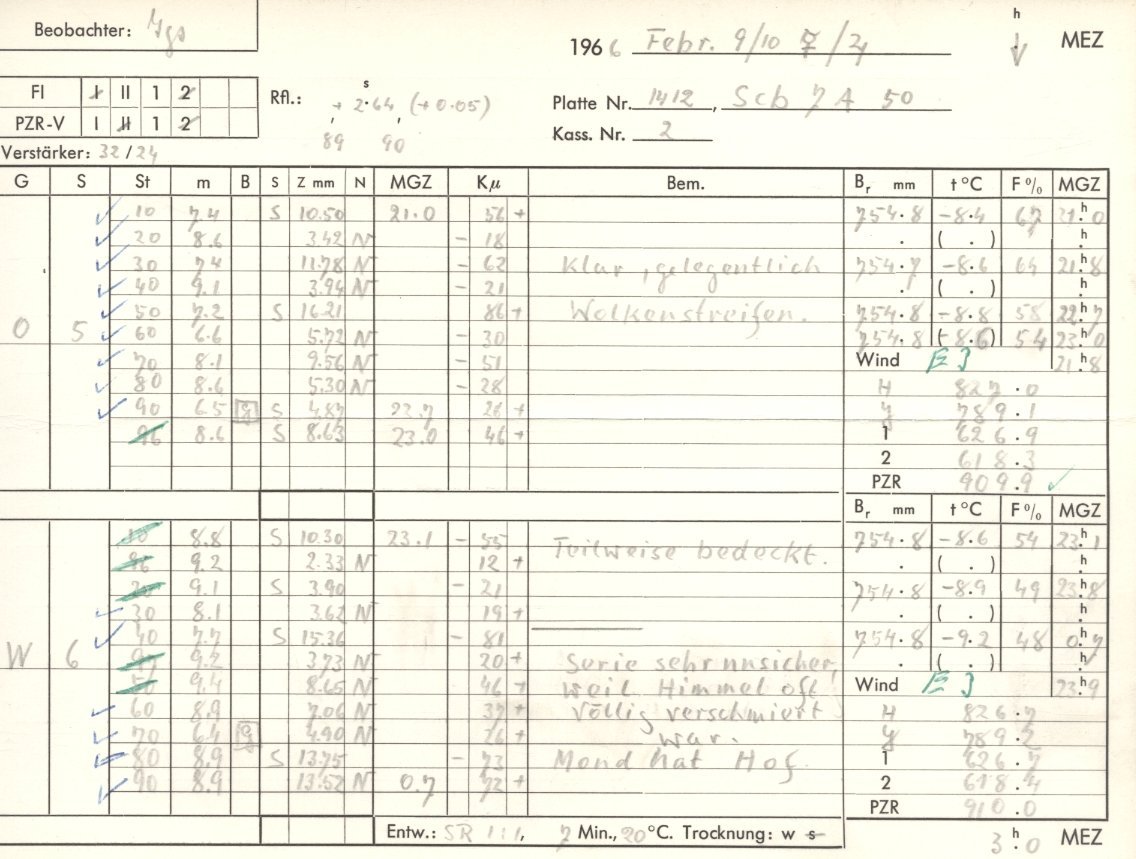 Beobachter: Jgs
1966 Febr. 9/10 ♀/♃ h MEZ
FI I II 1 2
Rfl.: + 2.64 s (+0.05)
Platte Nr. 1412, Scb 7A 50
PZR-V I II 1 2
89 90
Kass. Nr. 2
Verstärker: 32/24
G S St m B S Z mm N MGZ Kµ Bem. Br mm t °C F % MGZ
10 7.4 S 10.50 21.0 56 + 754.8 -8.4 67 21.0 h
20 8.6 3.42 N - 18 . ( . ) h
30 7.4 11.78 N - 62 Klar, gelegentlich 754.7 -8.6 64 21.8 h
40 9.1 3.94 N - 21 . ( . ) h
50 7.2 S 16.21 86 + Wolkenstreifen. 754.8 -8.8 58 22.7 h
O 5 60 6.6 5.72 N - 30 754.8 (-8.6) 54 23.0 h
70 8.1 9.56 N - 51 Wind E 3 21.8 h
80 8.6 5.30 N - 28 H 827.0
90 6.5 g S 4.87 22.7 26 + y 789.1
96 8.6 S 8.63 23.0 46 + 1 626.9
2 618.3
PZR 909.9
Br mm t °C F % MGZ
10 8.8 S 10.30 23.1 - 55 Teilweise bedeckt. 754.8 -8.6 54 23.1 h
96 9.2 2.33 N 12 + . ( . ) h
20 9.1 S 3.90 - 21 754.8 -8.9 49 23.8 h
30 8.1 3.62 N 19 + . ( . ) h
40 7.7 S 15.36 - 81 754.8 -9.2 48 0.7 h
W 6 97 9.2 3.73 N 20 + Serie sehr unsicher, . ( . ) h
50 9.4 8.65 N 46 + weil Himmel oft Wind E 3 23.9 h
60 8.9 7.06 N 37 + völlig verschmiert H 826.7
70 6.4 g 4.90 N 26 + war. y 789.2
80 8.9 S 13.75 - 73 Mond hat Hof 1 626.7
90 8.9 13.52 N 0.7 72 + 2 618.4
PZR 910.0
Entw.: SR 1:1, 7 Min., 20 °C. Trocknung: w s 3.0 h MEZ